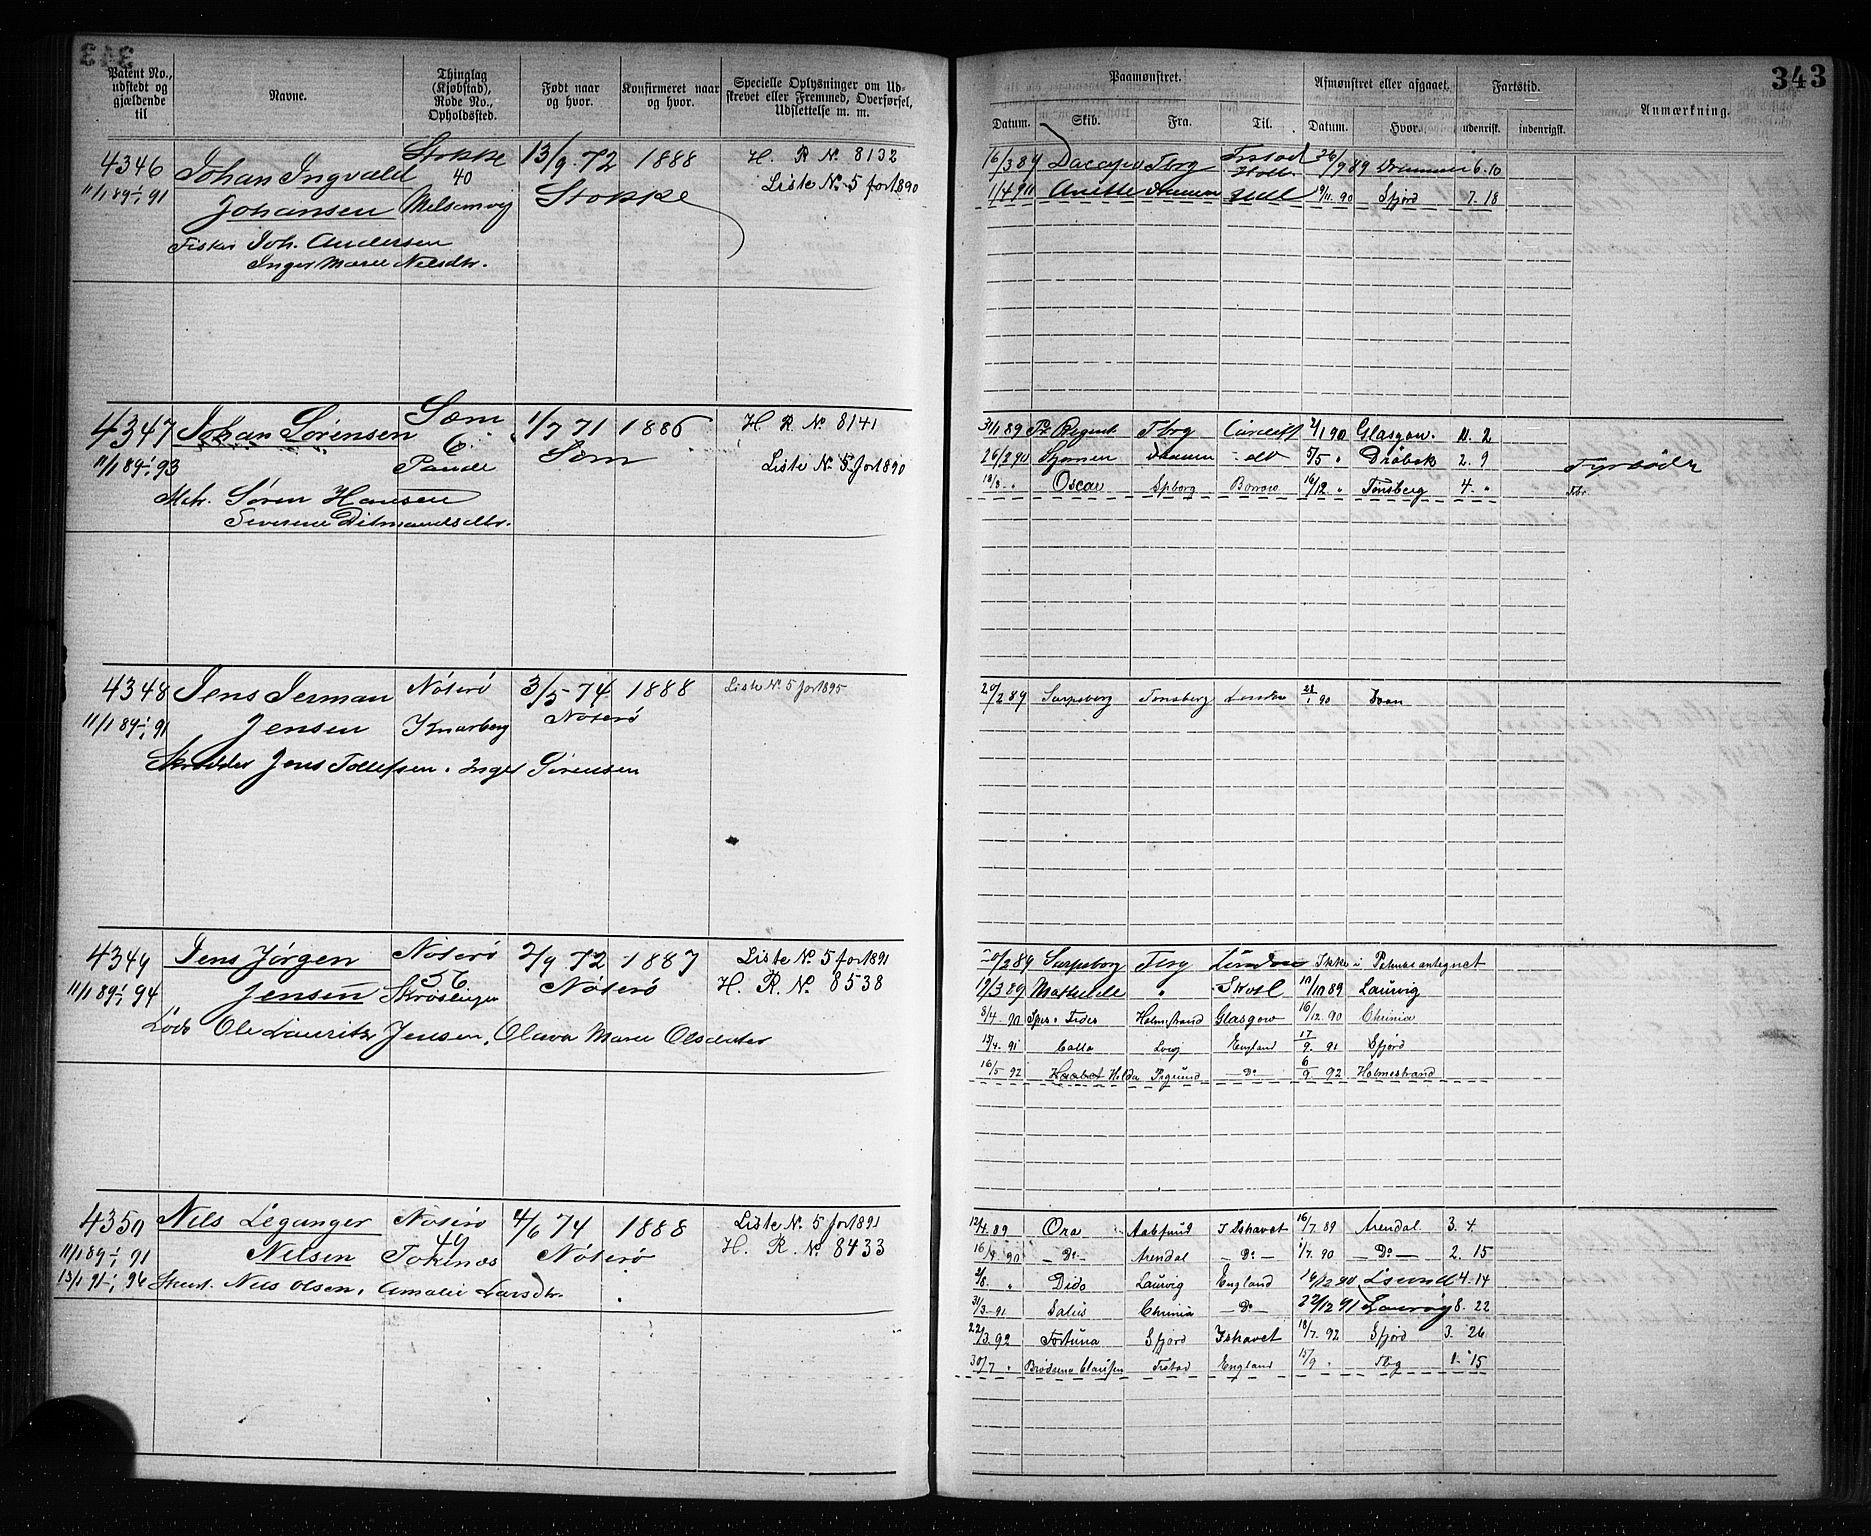 343
Patent No., udstedt og gjældende til
Navne.
Thinglag (Kjøbstad), Rode No., Opholdssted.
Født naar og hvor.
Konfirmeret naar og hvor.
Specielle Oplysninger om Udskrevet eller Fremmed, Overførsel, Udslettelse m. m.
4346 Johan Ingvald Stokke 13/9 72 1888 H. R. No 8132
11/1 89-1/1 91 Johansen 40 Melsomvig Stokke Liste No 5 for 1890
Fisker Joh. Andersen
Inger Marie Nilsdtr.
4347 Johan Sørensen Sæm 1/7 71 1886 H. R. No 8141
11/1 89-1/1 93 6 Paude Sæm Liste No 5 for 1890
Mtr. Søren Hansen
Severine Ditmandsdtr.
4348 Jens Jerman Nøterø 3/5 74 1888 Liste No 5 for 1895
11/1 89-1/1 91 Jensen Knarberg Nøterø
Skrædder Jens Tollefsen. Inger Sørensen
4349 Jens Jørgen Nøterø 2/9 72 1887 Liste No 5 for 1891
11/1 89-1/1 94 Jensen 56 Skrøslingen Nøterø H. R. No. 8538
Lods Ole Lauritz Jensen, Olava Marie Olsdatter
4350 Nils Leganger Nøterø 4/6 74 1888 Liste No 5 for 1891
11/1 89-1/1 91 Nilsen 49 Tokenæs Nøterø H. R. No 8433
13/1 91-1/1 96 Nils Olsen, Amalie Larsdtr.
343
Paamønstret.
Afmønstret eller afgaaet.
Fartstid.
Anmærkning.
Datum. Skib. Fra. Til. Datum. Hvor. udenrigst. indenrigst.
16/3 89 Dacapo Tbrg Frstad Holl. 26/9 89 Drammen 6. 10
1/4 90 Anette Drammen 9/11. 90 Sfjord 7. 18
31/1 89 Pr Regent Tbrg Cardiff 2/1 90 Glasgow. 11. 2
26/2 90 Stjernen Drammen do 5/5 " Drøbak 2. 9
18/8 " Oscar Spborg Borrow 16/12 " Tønsberg 4. "
Tbr.
20/2 89 Sarpsborg Tønsberg London 90
20/2 89 Sarpsborg Tbrg London Ikke i
19/3 89 Mathilde " 10/10 89 Laurvig
8/4 90 Holmestrand Glasgow 16/12. 90 Chrinia
15/4. 91 Calla England 17/9. 91 Sfjord
16/5 92 Haabet Hilda Do 6/9 92 Holmestrand
12/4. 89 Ora Aalesund Ishavet 16/7. 89 Arendal 3. 4
16/4 90 Do Arendal Do 1/7. 90 Do 2. 15
2/8. " Dido Laurvig England 16/12 90 4. 14
31/3. 91 Salus Chrinia Do 22/12 91 Laurvig 8. 22
22/3. 92 Fortuna Sfjord Ishavet 18/7. 92 Sfjord 3. 26
30/7 " Brødrene Clausen Frstad England 15/9 " Tbg 1. 15